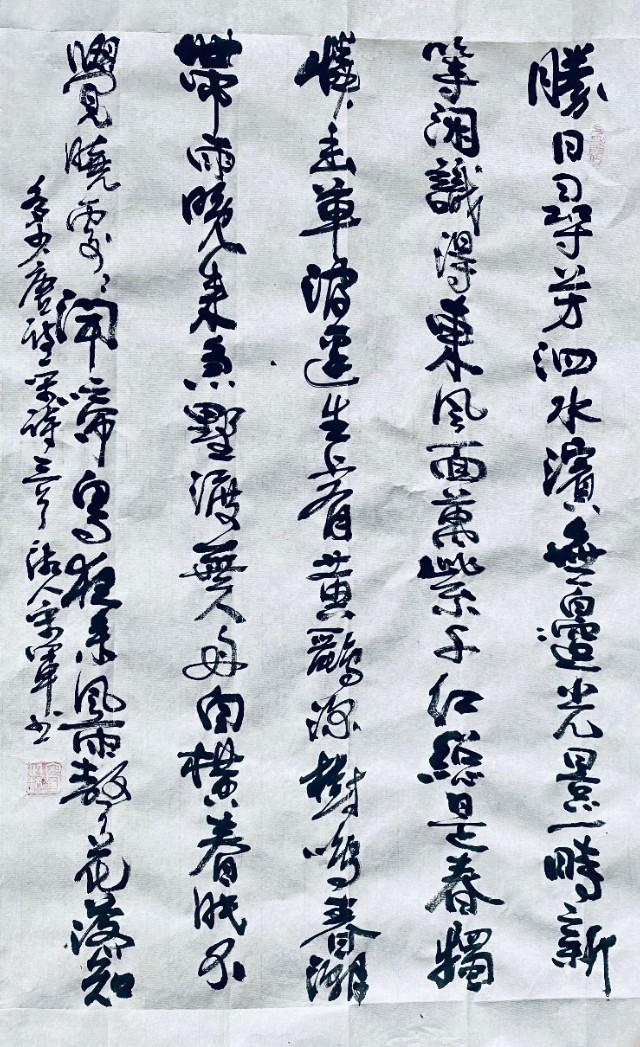 勝日尋芳泗水濱無邊光景一時新
等閑識得東風面萬紫千紅總是春獨
憐幽草澗邊生上有黃鸝深樹鳴春潮
帶雨晚來急野渡無人舟自橫春眠不
覺曉處々聞啼鳥夜來風雨聲花落知
多少唐詩宋詩三首人宋軍书